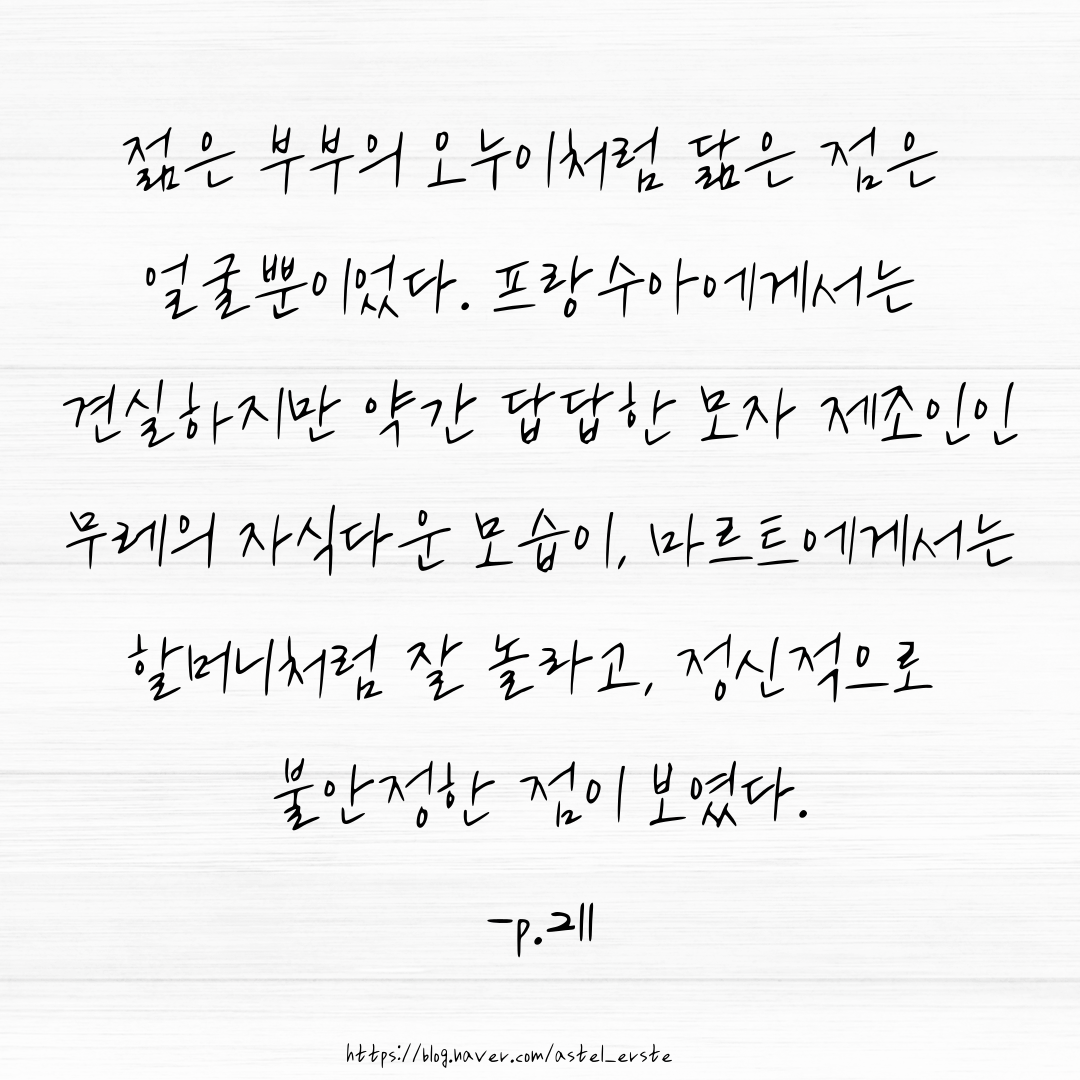 젊은 부부의 오누이처럼 닮은 점은
얼굴뿐이었다. 프랑수아에게서는
견실하지만 약간 답답한 모자 제조인인
무레의 자식다운 모습이, 마르트에게서는
할머니처럼 잘 놀라고, 정신적으로
불안정한 점이 보였다.
-p.211
https://blog.naver.com/astel_erste